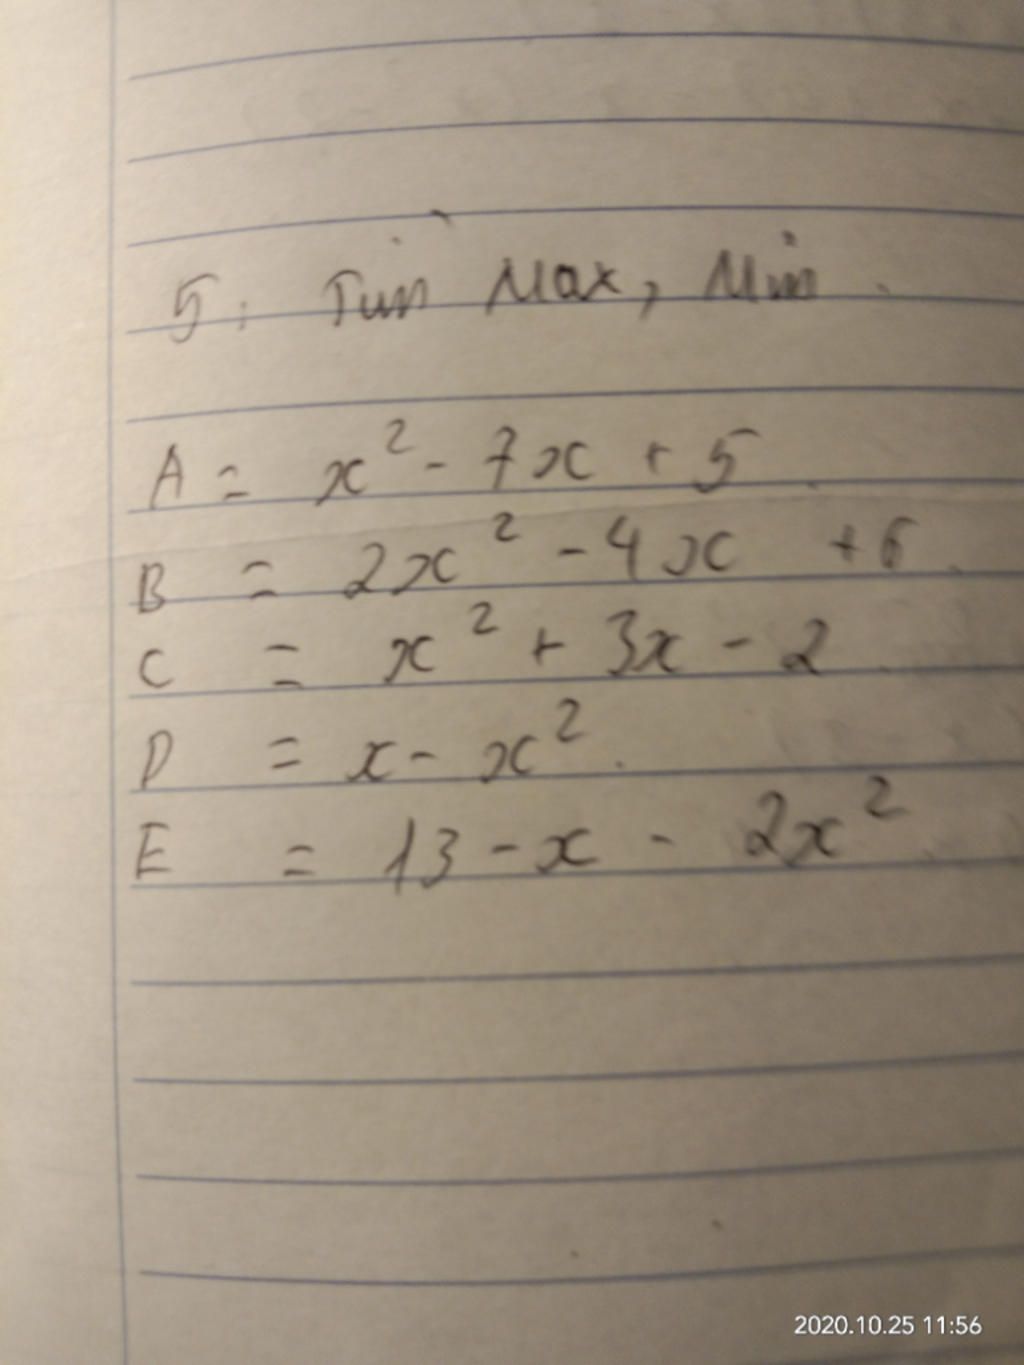 5. Tìm Max, Min.
A = x² - 7x + 5
B = 2x² - 4x + 6
C = x² + 3x - 2
D = x - x².
E = 13 - x - 2x²
2020.10.25 11:56